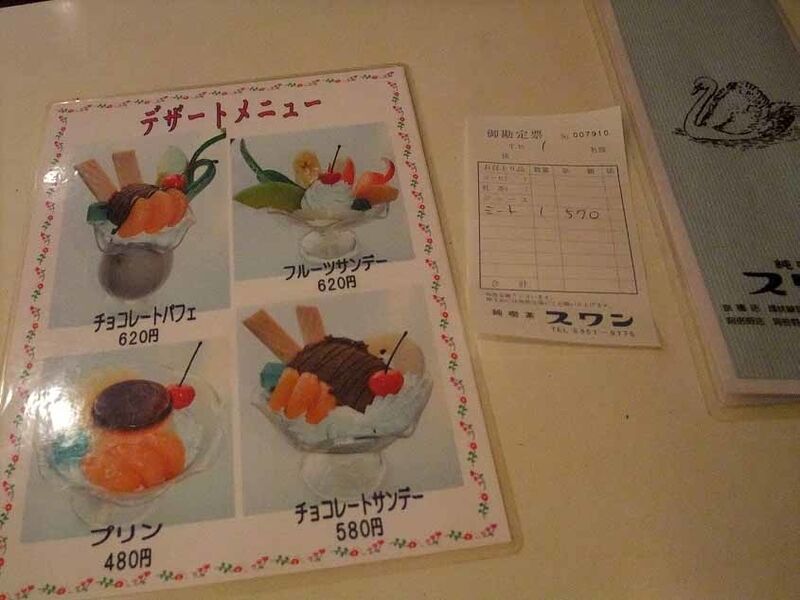 デザートメニュー
チョコレートパフェ
620円
フルーツサンデー
620円
プリン
480円
チョコレートサンデー
580円
御勘定票
No 007910
1
名様
数量
ミート 1 570
合計
純喫茶 スワン
TEL 6351-9175
純
スワン
京橋店